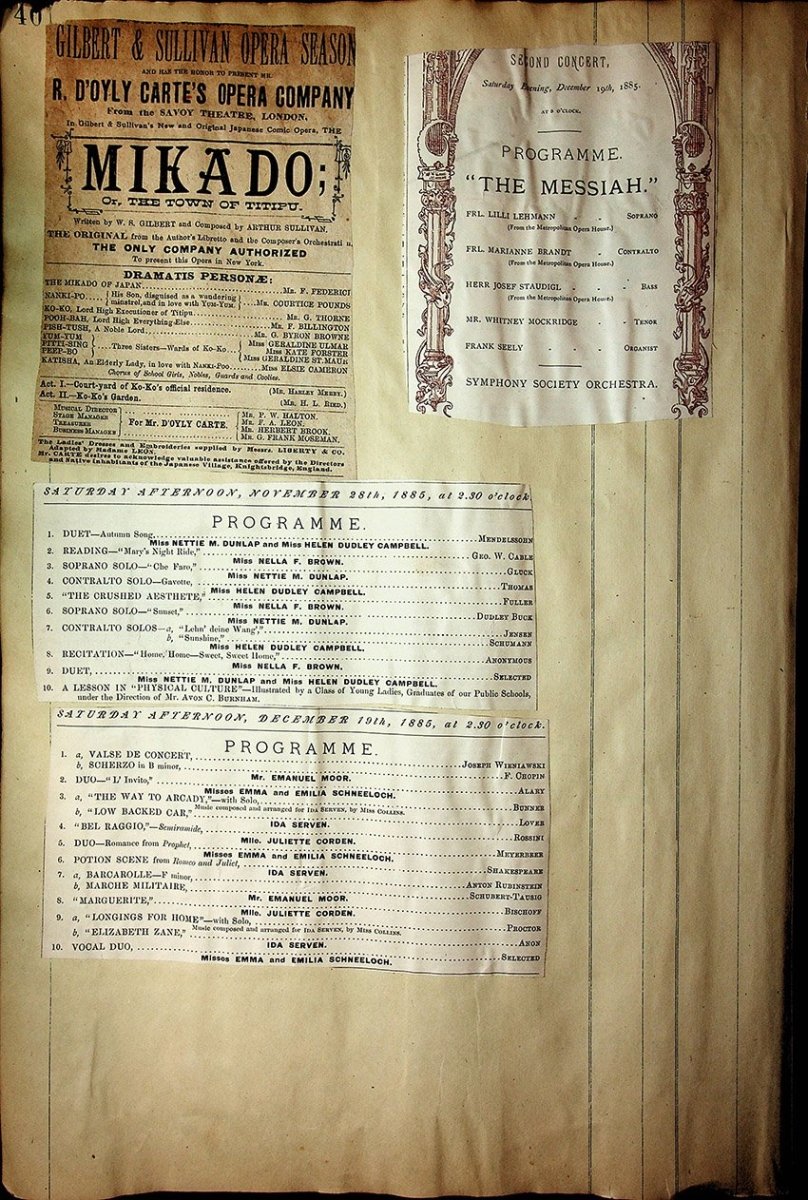 40
GILBERT & SULLIVAN OPERA SEASON
AND HAS THE HONOR TO PRESENT MR.
R. D'OYLY CARTE'S OPERA COMPANY
From the SAVOY THEATRE, LONDON,
In Gilbert & Sullivan's New and Original Japanese Comic Opera, THE
MIKADO;
Or, THE TOWN OF TITIPU.
Written by W. S. GILBERT and Composed by ARTHUR SULLIVAN.
THE ORIGINAL from the Author's Libretto and the Composer's Orchestrati n,
THE ONLY COMPANY AUTHORIZED
To present this Opera in New York.
DRAMATIS PERSONÆ:
THE MIKADO OF JAPAN........Mr. F. FEDERICI
NANKI-PO.....{His Son, disguised as a wandering minstrel, and in love with YUM-YUM.}...Mr. COURTICE POUNDS
KO-KO, Lord High Executioner of Titipu........Mr. G. THORNE
POOH-BAH, Lord High Everything Else........Mr. F. BILLINGTON
PISH-TUSH, A Noble Lord........Mr. G. BYRON BROWNE
YUM-YUM } Miss GERALDINE ULMAR
PITTI-SING }....Three Sisters—Wards of Ko-Ko....{ Miss KATE FORSTER
PEEP-BO } Miss GERALDINE ST. MAUR
KATISHA, An Elderly Lady, in love with NANKI-POO........Miss ELSIE CAMERON
Chorus of School Girls, Nobles, Guards and Coolies.
Act. I.—Court-yard of Ko-Ko's official residence. (Mr. HARLEY MERRY.)
Act. II.—Ko-Ko's Garden. (Mr. H. L. REID.)
MUSICAL DIRECTOR MR. P. W. HALTON.
STAGE MANAGER MR. F. A. LEON.
TREASURER For Mr. D'OYLY CARTE. MR. HERBERT BROOK.
BUSINESS MANAGER MR. G. FRANK MOSEMAN.
The Ladies' Dresses and Embroideries supplied by Messrs. LIBERTY & CO.
Adapted by Madame LEON.
Mr. CARTE desires to acknowledge valuable assistance offered by the Directors
and Native Inhabitants of the Japanese Village, Knightsbridge, England.
SECOND CONCERT,
Saturday Evening, December 19th, 1885.
AT 8 O'CLOCK.
PROGRAMME.
"THE MESSIAH."
FRL. LILLI LEHMANN - - SOPRANO
(From the Metropolitan Opera House.)
FRL. MARIANNE BRANDT - CONTRALTO
(From the Metropolitan Opera House.)
HERR JOSEF STAUDIGL - - BASS
(From the Metropolitan Opera House.)
MR. WHITNEY MOCKRIDGE - - TENOR
FRANK SEELY - - - ORGANIST
SYMPHONY SOCIETY ORCHESTRA.
SATURDAY AFTERNOON, NOVEMBER 28th, 1885, at 2.30 o'clock.
PROGRAMME.
1. DUET—Autumn Song,........MENDELSSOHN
Miss NETTIE M. DUNLAP and Miss HELEN DUDLEY CAMPBELL.
2. READING—"Mary's Night Ride,"........GEO. W. CABLE
Miss NELLA F. BROWN.
3. SOPRANO SOLO—"Che Faro,"........GLUCK
Miss NETTIE M. DUNLAP.
4. CONTRALTO SOLO—Gavotte,........THOMAS
Miss HELEN DUDLEY CAMPBELL.
5. "THE CRUSHED AESTHETE,"........FULLER
Miss NELLA F. BROWN.
6. SOPRANO SOLO—"Sunset,"........DUDLEY BUCK
Miss NETTIE M. DUNLAP.
7. CONTRALTO SOLOS—a, "Lehn' deine Wang',"........JENSEN
b, "Sunshine,"........SCHUMANN
Miss HELEN DUDLEY CAMPBELL.
8. RECITATION—"Home, Home—Sweet, Sweet Home,"........ANONYMOUS
Miss NELLA F. BROWN.
9. DUET,........SELECTED
Miss NETTIE M. DUNLAP and Miss HELEN DUDLEY CAMPBELL.
10. A LESSON IN "PHYSICAL CULTURE"—Illustrated by a Class of Young Ladies, Graduates of our Public Schools,
under the Direction of Mr. AVON C. BURNHAM.
SATURDAY AFTERNOON, DECEMBER 19th, 1885, at 2.30 o'clock.
PROGRAMME.
1. a, VALSE DE CONCERT,........JOSEPH WIENIAWSKI
b, SCHERZO in B minor,........F. CHOPIN
Mr. EMANUEL MOOR.
2. DUO—"L' Invito,"........ALARY
Misses EMMA and EMILIA SCHNEELOCH.
3. a, "THE WAY TO ARCADY,"—with Solo,........BUNNER
Music composed and arranged for IDA SERVEN, by MISS COLLINS.
b, "LOW BACKED CAR,"........LOVER
IDA SERVEN.
4. "BEL RAGGIO,"—Semiramide,........ROSSINI
Mlle. JULIETTE CORDEN.
5. DUO—Romance from Prophet,........MEYERBEER
Misses EMMA and EMILIA SCHNEELOCH.
6. POTION SCENE from Romeo and Juliet,........SHAKESPEARE
IDA SERVEN.
7. a, BARCAROLLE—F minor,........ANTON RUBINSTEIN
b, MARCHE MILITAIRE,........SCHUBERT-TAUSIG
Mr. EMANUEL MOOR.
8. "MARGUERITE,"........BISCHOFF
Mlle. JULIETTE CORDEN.
9. a, "LONGINGS FOR HOME"—with Solo,........PROCTOR
Music composed and arranged for IDA SERVEN, by MISS COLLINS.
b, "ELIZABETH ZANE,"........ANON
IDA SERVEN.
10. VOCAL DUO,........SELECTED
Misses EMMA and EMILIA SCHNEELOCH.